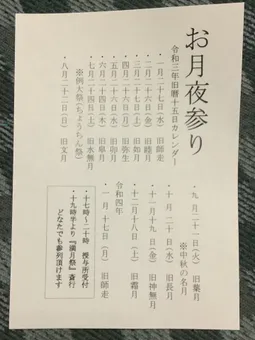 お月夜参り
令和三年旧暦十五日カレンダー
一月二十七日(水) 旧師走
二月二十六日(金) 旧睦月
三月二十七日(土) 旧如月
四月二十六日(月) 旧弥生
五月二十六日(水) 旧卯月
六月二十四日(木) 旧皐月
七月二十四日(土) 旧水無月
※例大祭(ちょうちん祭)
八月二十二日(日) 旧文月
九月二十一日(火) 旧葉月
※中秋の名月
十月二十日(水) 旧長月
十一月十九日(金) 旧神無月
十二月十八日(土) 旧霜月
令和四年
一月十七日(月) 旧師走
・十七時~二十時 授与所受付
・十九時半より『満月祭』斎行
どなたでも参列頂けます